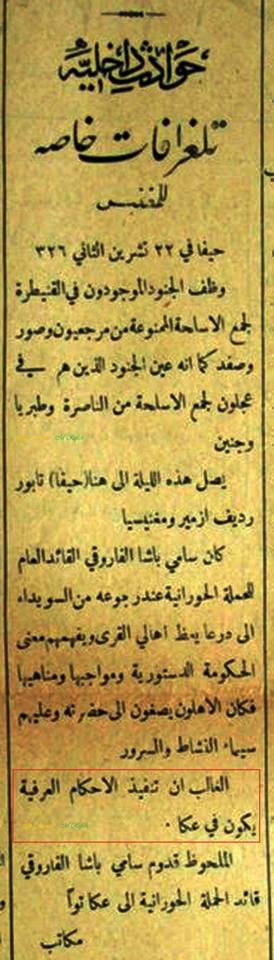 حوادث داخلية
تلغرافات خاصه
للمقتبس
حيفا في ٢٢ تشرين الثاني ٣٢٦
وظف الجنود الموجودون في القنيطرة
لجمع الاسلحة الممنوعة من مرجعيون وصور
وصفد كما انه عين الجنود الذين هم في
عجلون لجمع الاسلحة من الناصرة وطبريا
وجنين
يصل هذه الليلة الى هنا (حيفا) تابور
رديف ازمير ومغنيسيا
كان سامي باشا الفاروقي القائد العام
للحملة الحورانية عند رجوعه من السويداء
الى درعا يعظ اهالي القرى ويفهمهم معنى
الحكومة الدستورية ومواجبها ومناهيها
فكان الاهلون يصغون الى حضرته وعليهم
سيماء النشاط والسرور
الغالب ان تنفيذ الاحكام العرفية
يكون في عكا ٠
الملحوظ قدوم سامي باشا الفاروقي
قائد الحملة الحورانية الى عكا تواً
مكاتب